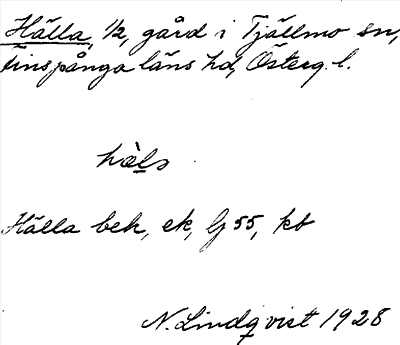 Hälla, 1/2, gård i Tjällmo sn,
Finspånga läns hd, Österg. l.
hæ̀ls
Hälla beh, ek, Gj 55, kb
N. Lindqvist 1928